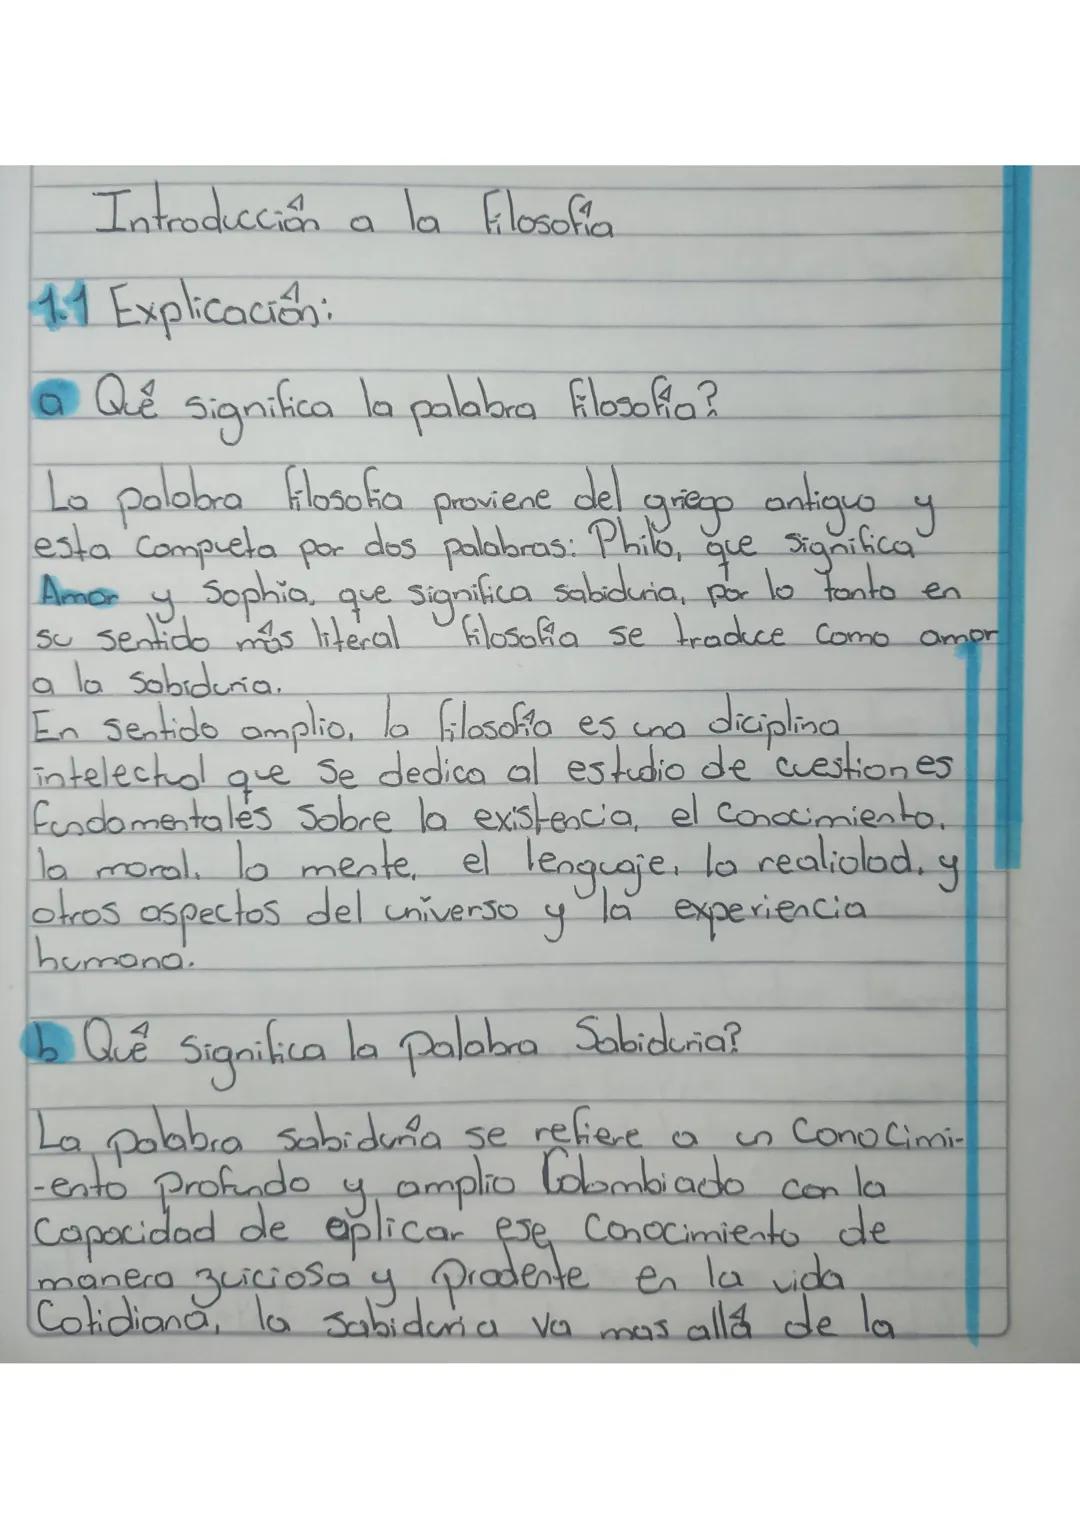 Introducción a la filosofía
1.1 Explicación:
a Qué significa la palabra filosofía?
La palabra filosofia proviene del griego antiguo y
esta compueta por dos palabras: Philo, que significa
Amor y Sophia, que significa sabiduria, por lo tanto en
su sentido más literal filosofía se traduce como amor
a la sabiduria.
En sentido amplio, la filosofía es una diciplina
intelectual que se dedica al estudio de cuestiones
fundamentales sobre la existencia, el conocimiento,
la moral, la mente, el lenguaje, la realidad, y
otros aspectos del universo y la experiencia
humana.
b Qué significa la palabra Sabiduria?
La palabra sabiduría se refiere a un conocimi-
-ento profundo y amplio Colombiado con la
capacidad de aplicar ese conocimiento de
manera zuiciosa y prodente en la vida
cotidiana, la sabiduria va mas allá de la